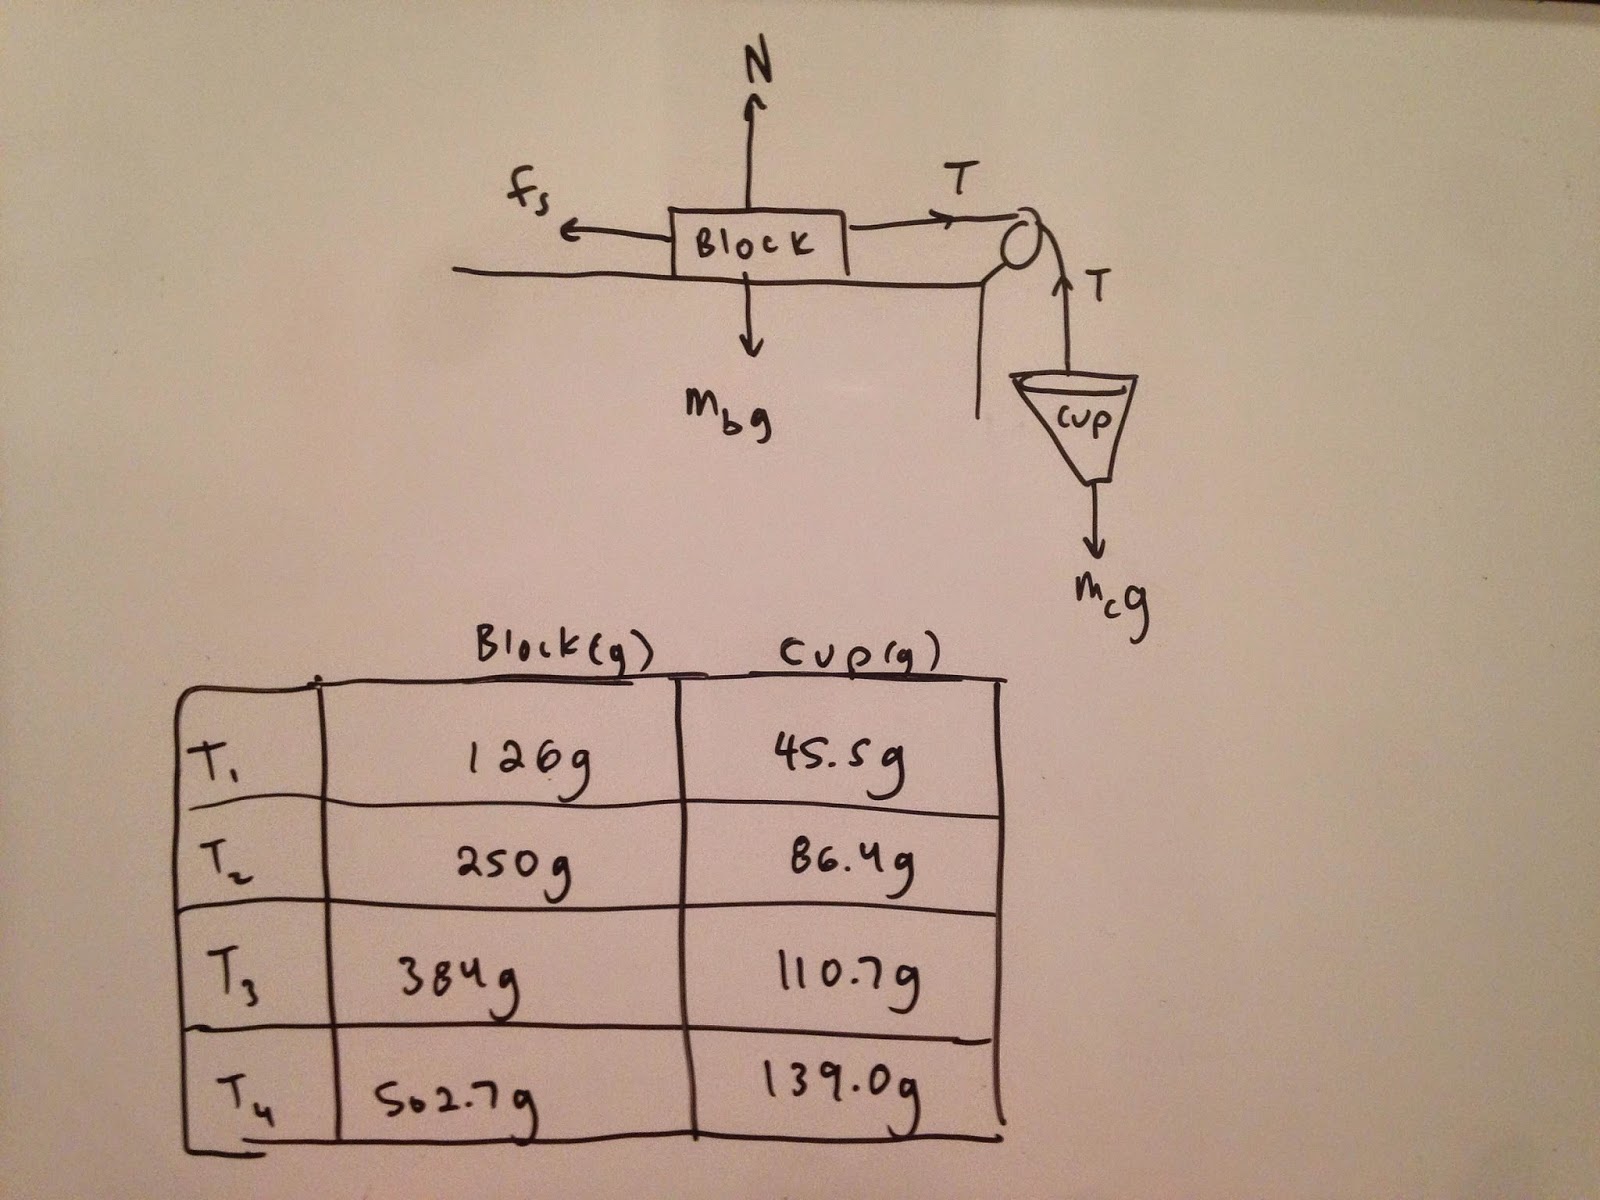 N
fs
T
Block
T
mbg
cup
mcg
Block(g) Cup(g)
T1 126g 45.5g
T2 250g 86.4g
T3 384g 110.7g
T4 502.7g 139.0g